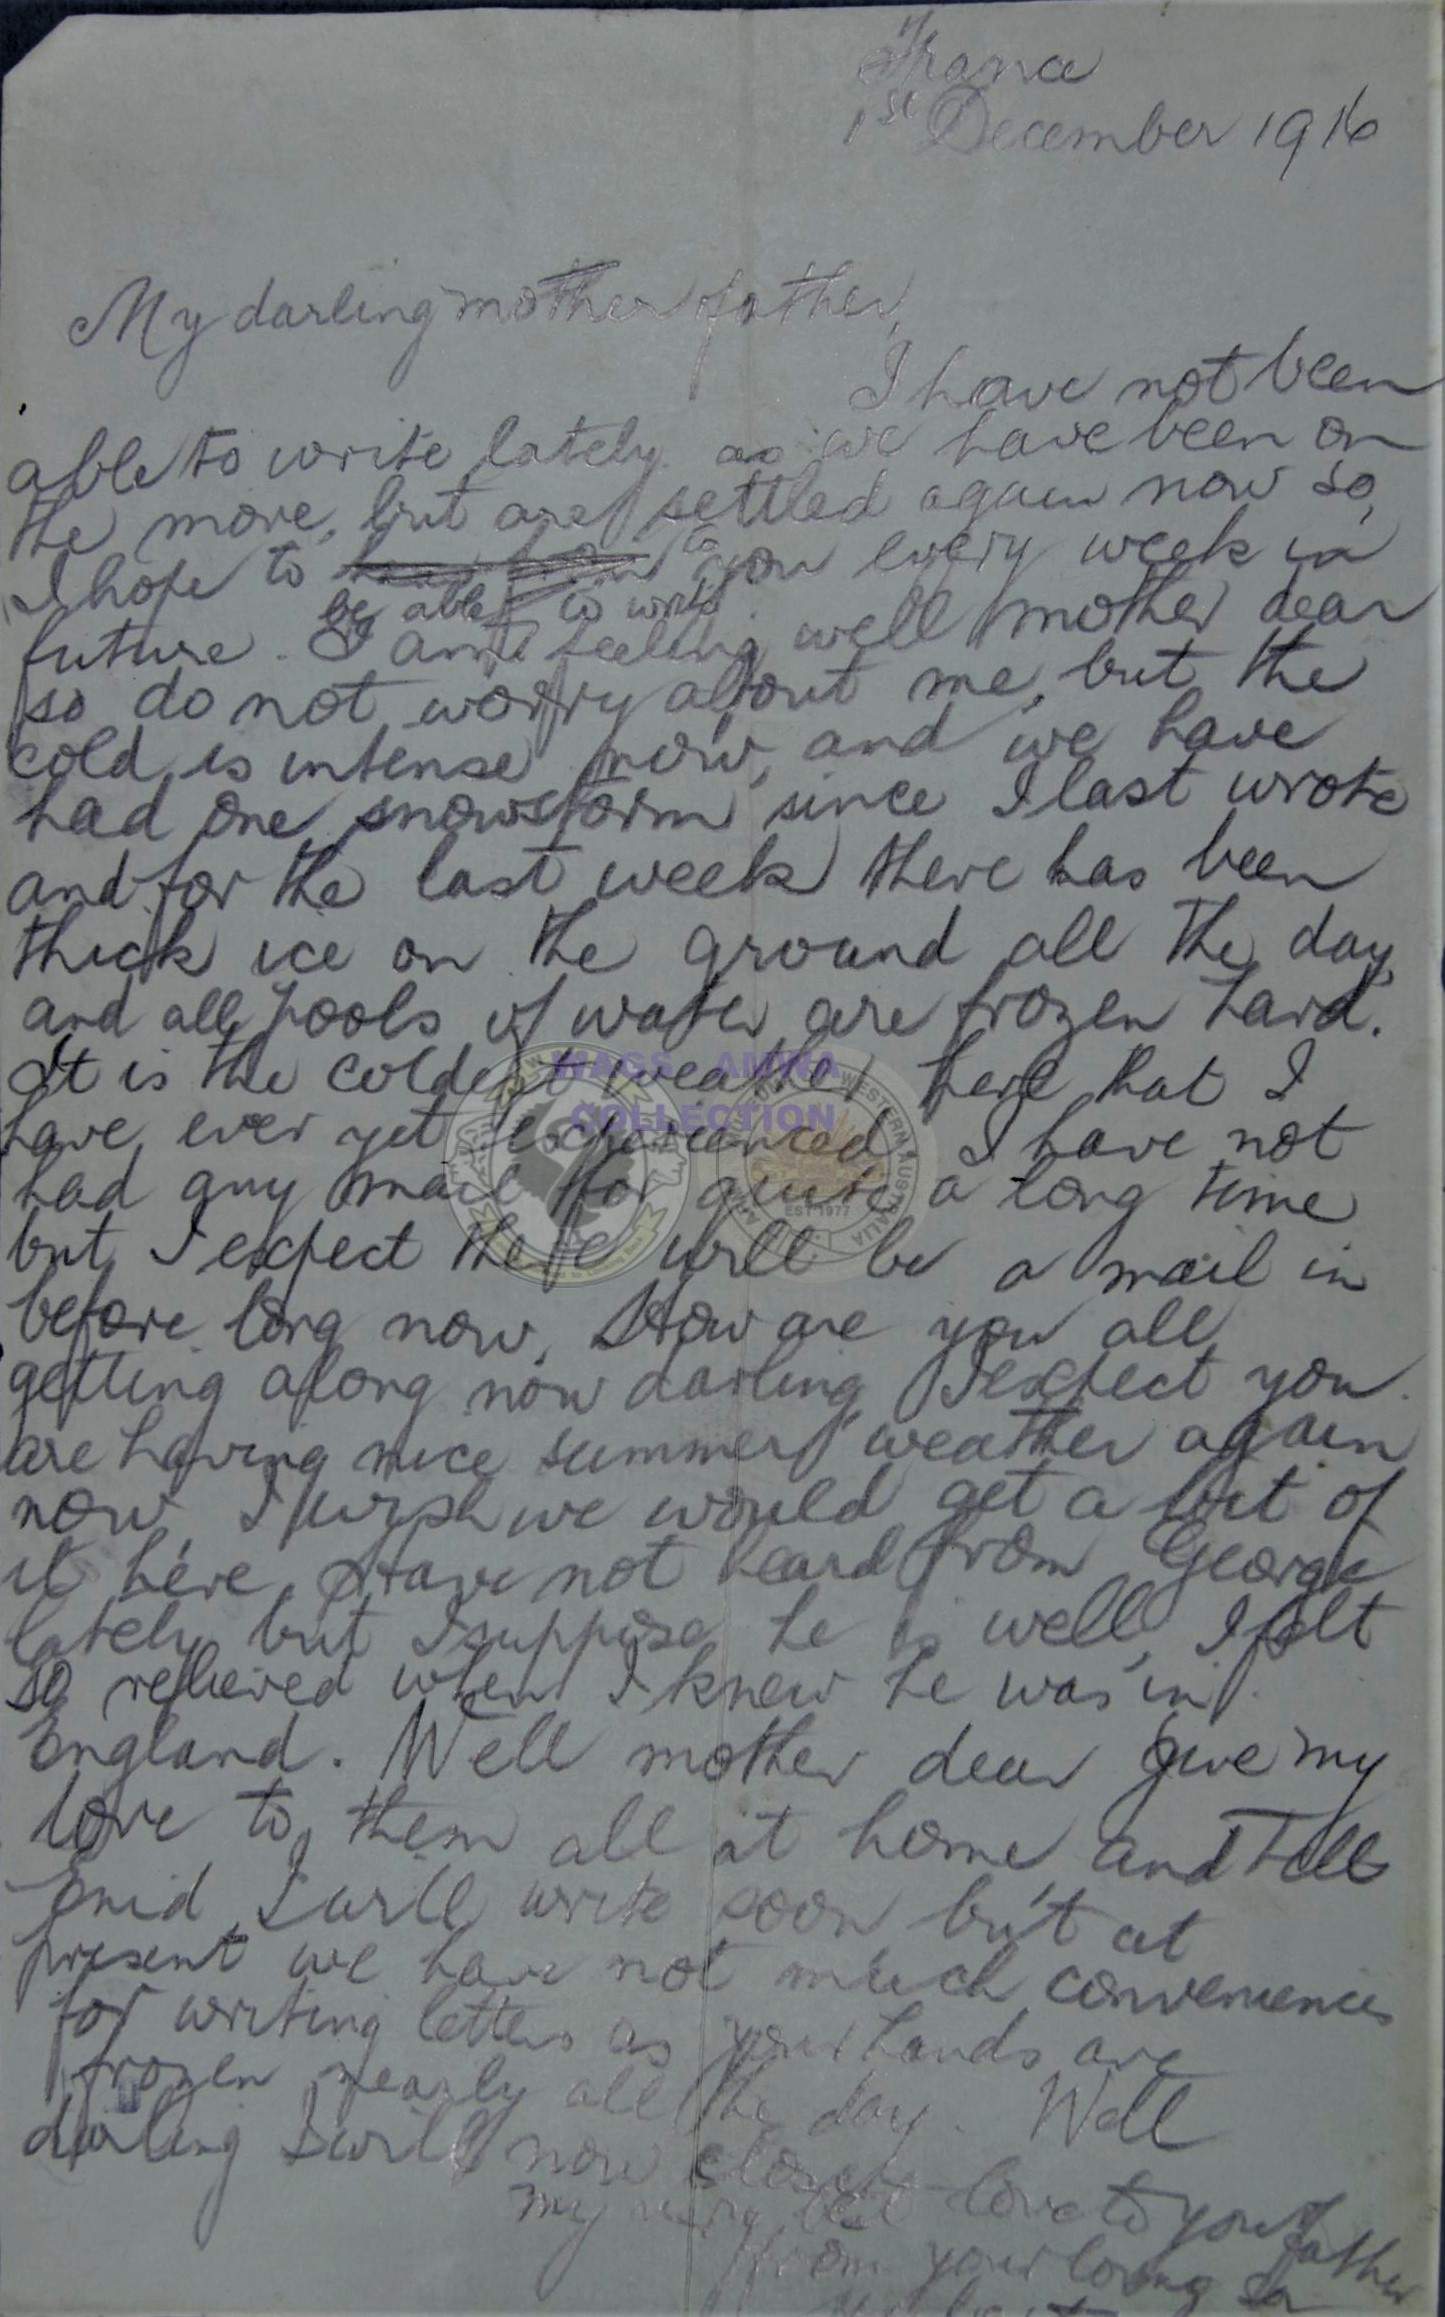 France
1st December 1916
My darling mother father,
I have not been
able to write lately as we have been on
the move, but are settled again now so,
I hope to to you every week in
be able to write
future. I am feeling well mother dear
so do not worry about me, but the
cold is intense now, and we have
had one snowstorm since I last wrote
and for the last week there has been
thick ice on the ground all the day,
and all pools of water are frozen hard.
It is the coldest weather here that I
WAGS AMWA
COLLECTION
WESTERN AUSTRALIA
EST 1977
have ever yet experienced, I have not
had any mail for quite a long time
but I expect there will be a mail in
before long now. How are you all
getting along now darling, I expect you
are having nice summer weather again
now, I wish we would get a bit of
it here. Have not heard from George
lately but I suppose he is well, I felt
so relieved when I knew he was in
England. Well mother dear give my
love to them all at home, and tell
Enid I will write soon, but at
present we have not much conveniences
for writing letters as your hands are
frozen nearly all the day. Well
darling I will now close
my very best love to you father
from your loving son